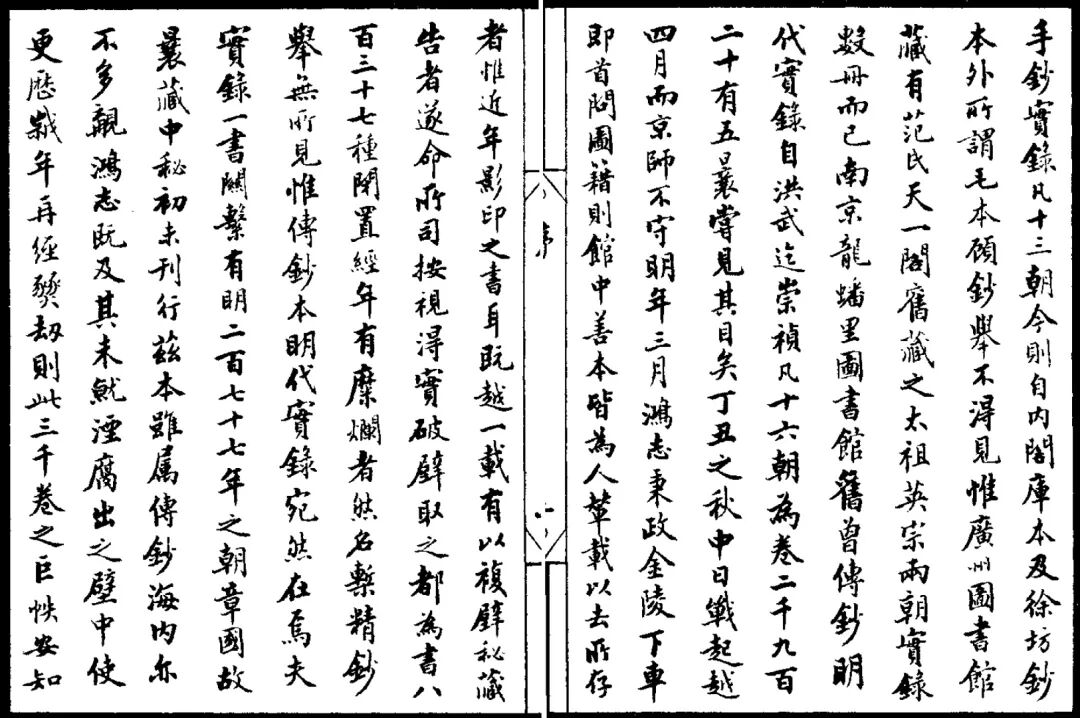 手鈔實錄凡十三朝今則自內閣庫本及徐坊鈔
本外所謂毛本顧鈔舉不得見惟廣州圖書館
藏有范氏天一閣舊藏之太祖英宗兩朝實錄
數冊而已南京龍蟠里圖書館舊曾傳鈔明
代實錄自洪武迄崇禎凡十六朝為卷二千九百
二十有五曩嘗見其目矣丁丑之秋中日戰起越
四月而京師不守明年三月鴻志秉政金陵下車
即首問圖籍則館中善本皆為人輦載以去所存
序
二
者惟近年影印之書耳既越一載有以複壁秘藏
告者遂命所司按視得實破壁取之都為書八
百三十七種閉置經年有糜爛者然名槧精鈔
舉無所見惟傳鈔本明代實錄宛然在焉夫
實錄一書關繫有明二百七十七年之朝章國故
曩藏中秘初未刊行茲本雖属傳鈔海內亦
不多覯鴻志既及其未魷湮腐出之壁中使
更歷歲年再經劫則此三千卷之巨帙安知